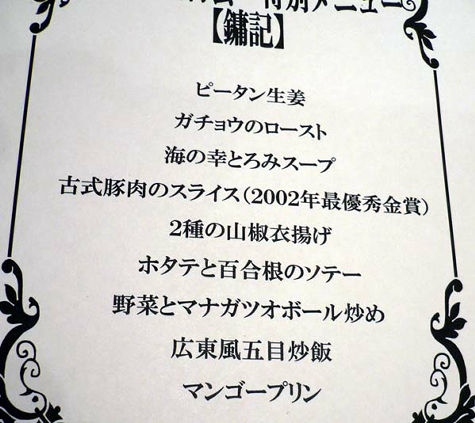 特別メニュー
【鏞記】
ピータン生姜
ガチョウのロースト
海の幸とろみスープ
古式豚肉のスライス（2002年最優秀金賞）
2種の山椒衣揚げ
ホタテと百合根のソテー
野菜とマナガツオボール炒め
広東風五目炒飯
マンゴープリン